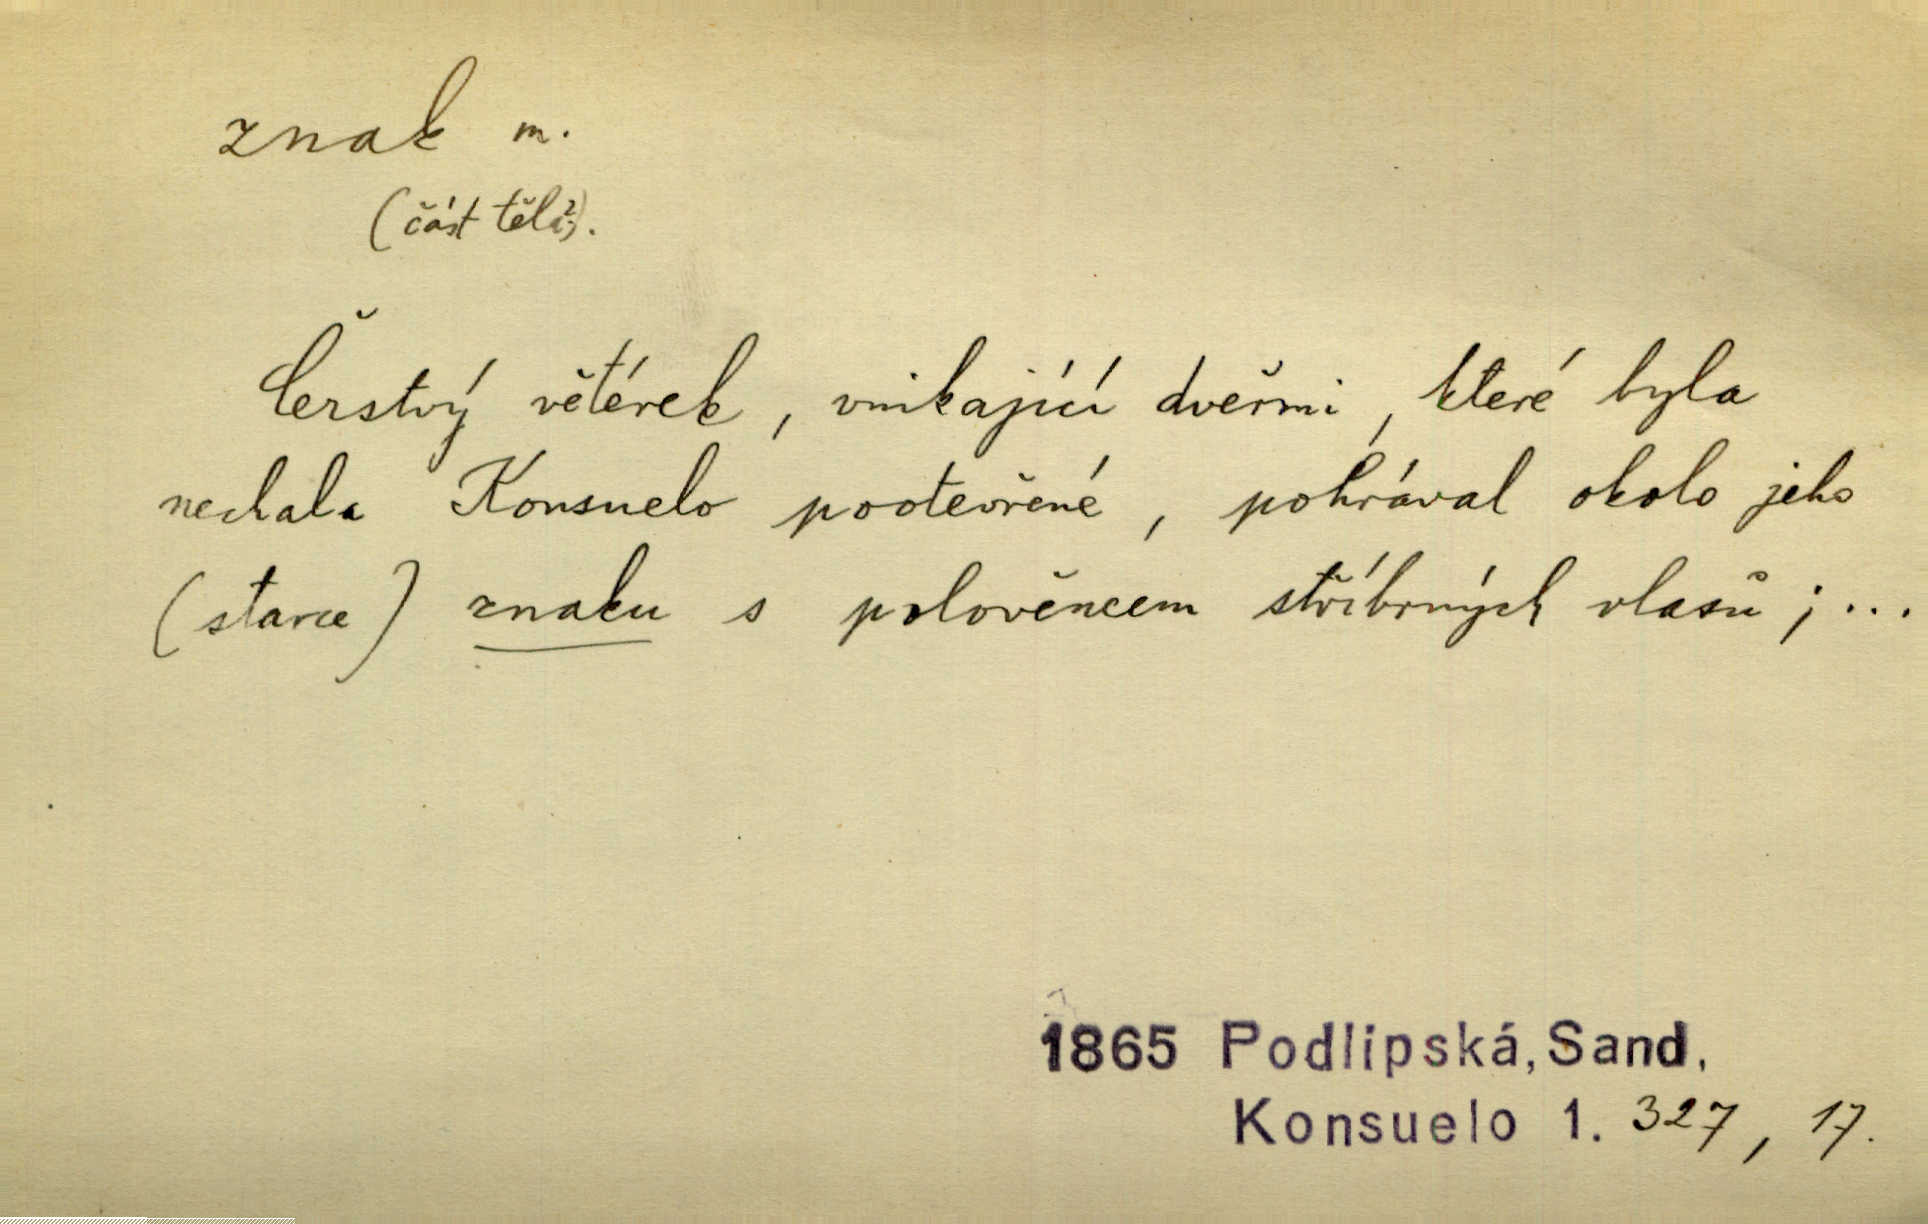 znak m.
(část těla?).
Čerstvý větérek, vnikající dveřmi, které byla
nechala Konsuelo pootevřené, pohrával okolo jeho
(starce) znaku s polověncem stříbrných vlasů; ...
1865 Podlipská, Sand,
Konsuelo 1. 327, 17.